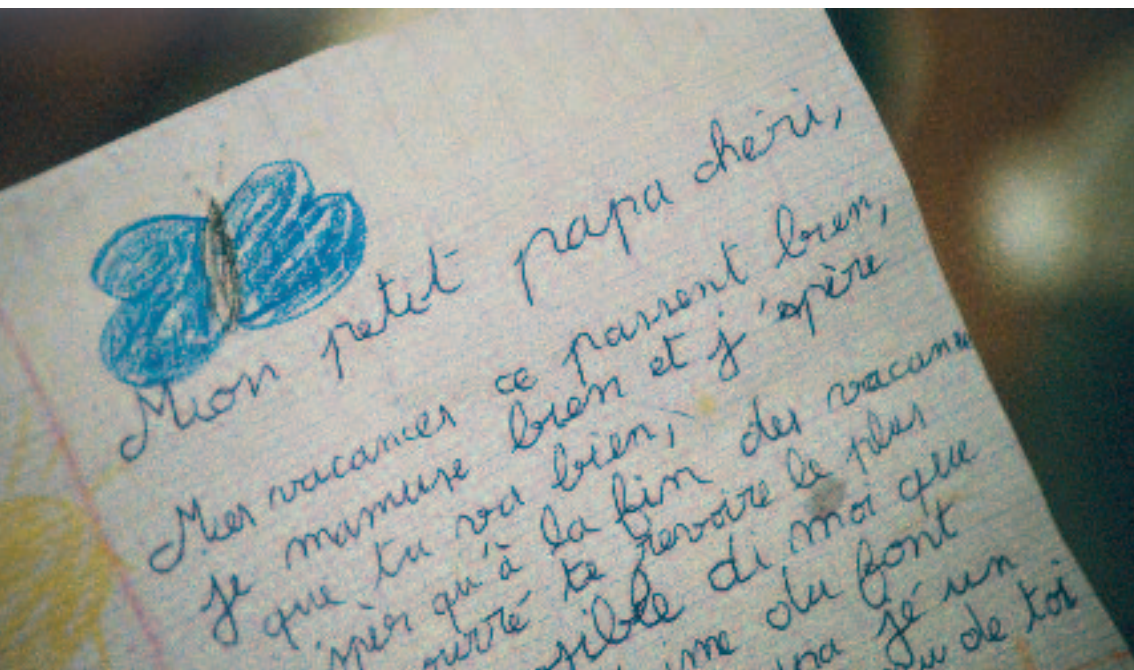 Mon petit papa chéri,
Mes vacances ce passent bien,
je mamuse bien et j'espère
que tu va bien,
qu'à la fin des vacances
te revoire le plus
di moi que
du font
jé un
de toi